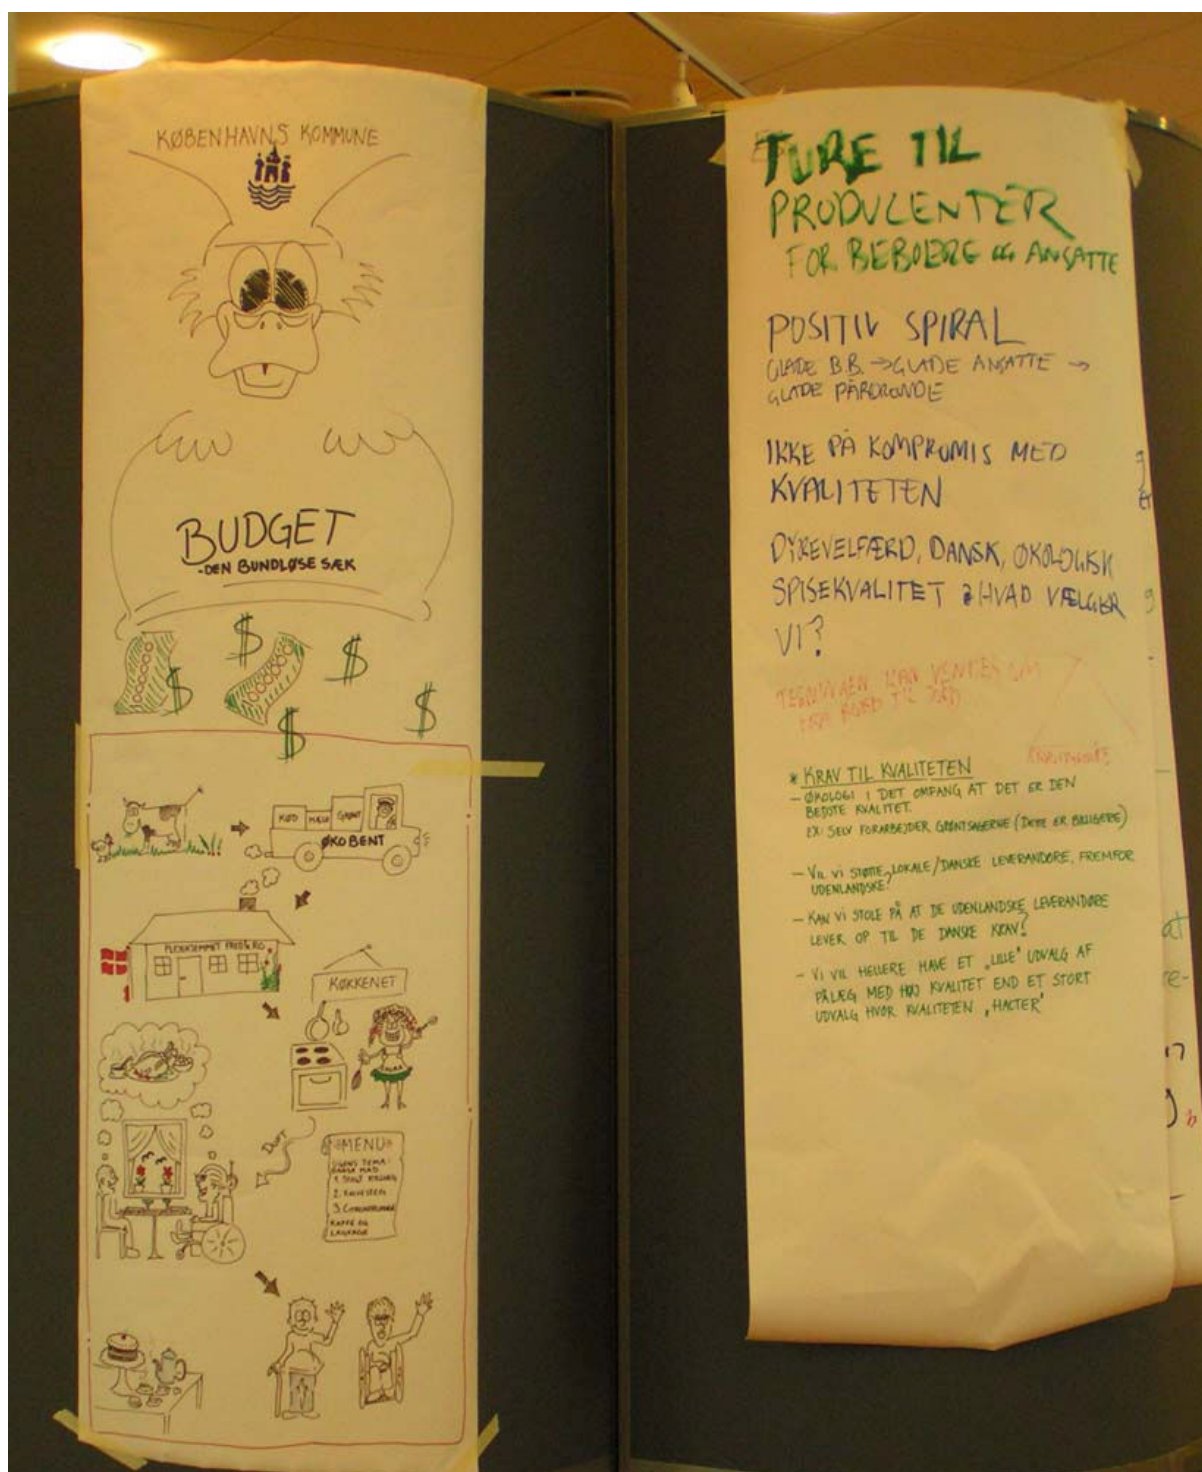 KØBENHAVNS KOMMUNE
BUDGET
-DEN BUNDLØSE SÆK
$ $ $
$
$
$
KØD MÆLK GRØNT
ØKO BENT
PLEJEHJEMMET FRED & RO
KØKKENET
DUFT
MENU
UGENS TEMA:
DANSK MAD
1. STEGT
2. KALVESTEG
3. CITRONFROMAGE
KAFFE OG
LAGKAGE
TURE TIL
PRODUCENTER
FOR BEBOERE OG ANSATTE
POSITIV SPIRAL
GLADE B.B. → GLADE ANSATTE →
GLADE PÅRØRENDE
IKKE PÅ KOMPROMIS MED
KVALITETEN
DYREVELFÆRD, DANSK, ØKOLOGISK
SPISEKVALITET HVAD VÆLGER
VI?
TEGNINGEN KAN VENDES OM
FRA BORD TIL JORD
* KRAV TIL KVALITETEN
- ØKOLOGI I DET OMFANG AT DET ER DEN
BEDSTE KVALITET.
EX: SELV FORARBEJDER GRØNTSAGERNE (DETTE ER BILLIGERE)
- VIL VI STØTTE LOKALE/DANSKE LEVERANDØRE, FREMFOR
UDENLANDSKE?
- KAN VI STOLE PÅ AT DE UDENLANDSKE LEVERANDØRE
LEVER OP TIL DE DANSKE KRAV?
- VI VIL HELLERE HAVE ET "LILLE" UDVALG AF
PÅLÆG MED HØJ KVALITET END ET STORT
UDVALG HVOR KVALITETEN "HALTER"